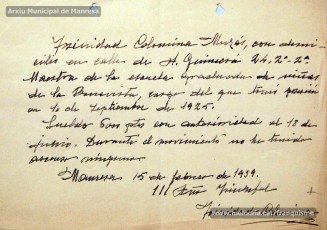 Arxiu Municipal de Manresa
Trinidad Colomina Muzás, con domi-
cilio en calle de A. Guimerá 24, 2º-2ª
Maestra de la escuela Graduada de niñas
de la Bonavista, cargo del que tomó posesión
en 1º de Septiembre de 1925.
Sueldo 5000 ptas con anterioridad al 18 de
julio. Durante el movimiento no he tenido
ascenso ninguno.
Manresa 15 de febrero de 1939.
III Año Triunfal
Trinidad Colomina
www.memoria.cat/franquisme